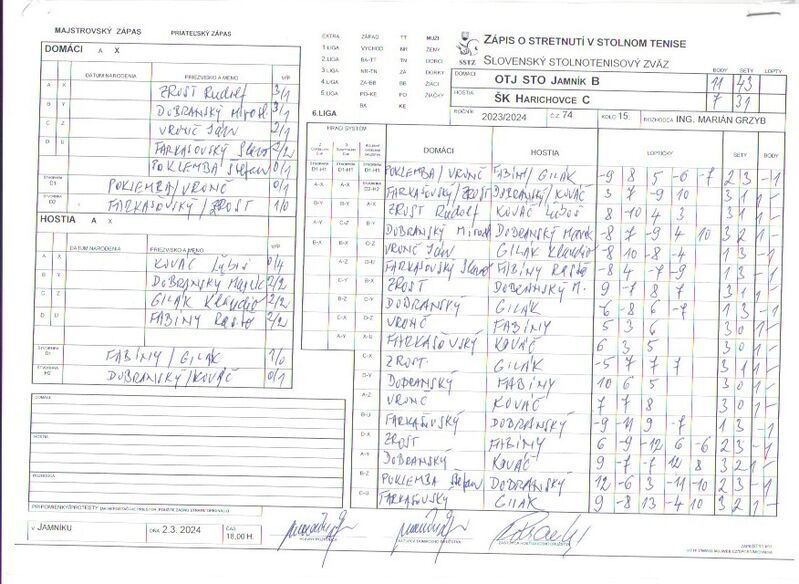 MAJSTROVSKÝ ZÁPAS PRIATEĽSKÝ ZÁPAS
DOMÁCI A X
DÁTUM NARODENIA PRIEZVISKO A MENO V/P
A X ZROST Rudolf 3/1
B Y DOBRANSKÝ Mirosl. 3/1
C Z VRONČ Ján 2/1
D U FARKAŠOVSKÝ Slavo 2/2
POKLEMBA Štefan 0/1
ŠTVORHRA D1 POKLEMBA/VRONČ 0/1
ŠTVORHRA D2 FARKAŠOVSKÝ/ZROST 1/0
HOSTIA A X
DÁTUM NARODENIA PRIEZVISKO A MENO V/P
A X KOVÁČ Ľuboš 0/4
B Y DOBRANSKÝ Marek 2/2
C Z GILÁK Klaudio 2/2
D U FABINY Rasťo 2/2
ŠTVORHRA H1 FABINY/GILÁK 1/0
ŠTVORHRA H2 DOBRANSKÝ/KOVÁČ 0/1
DOMÁCI
HOSTIA
ROZHODCA
V JAMNÍKU DŇA 2.3. 2024 ČAS 18,00 H.
EXTRA ZÁPAD TT MUŽI
1 LIGA VÝCHOD NR ŽENY
2 LIGA BA-TT TN DORCI
3 LIGA NR-TN ZA DORKY
4 LIGA ZA-BB BB ŽIACI
5 LIGA PO-KE PO ŽIAČKY
BA KE
6.LIGA
SSTZ
ZÁPIS O STRETNUTÍ V STOLNOM TENISE
SLOVENSKÝ STOLNOTENISOVÝ ZVÄZ
BODY SETY LOPTY
DOMÁCI OTJ STO Jamník B 11 43
HOSTIA ŠK Harichovce C 7 31
ROČNÍK 2023/2024 Č.Z. 74 KOLO 15. ROZHODCA ING. MARIÁN GRZYB
HRACÍ SYSTÉM DOMÁCI HOSTIA LOPTIČKY SETY BODY
POKLEMBA/VRONČ FABINY/GILÁK -9 8 5 -6 -7 2 3 - 1
FARKAŠOVSKÝ/ZROST DOBRANSKÝ/KOVÁČ 3 7 -9 10 3 1 1 -
ZROST Rudolf KOVÁČ Ľuboš 8 -10 4 3 3 1 1 -
DOBRANSKÝ Mirosl. DOBRANSKÝ Marek -8 7 -9 4 10 3 2 1 -
VRONČ Ján GILÁK Klaudio -8 10 -8 -4 1 3 - 1
FARKAŠOVSKÝ Slavo FABINY Rasťo -8 4 -7 -9 1 3 - 1
ZROST DOBRANSKÝ M. 9 -7 8 7 3 1 1 -
DOBRANSKÝ GILÁK -6 -8 6 -7 1 3 - 1
VRONČ FABINY 5 3 6 3 0 1 -
FARKAŠOVSKÝ KOVÁČ 6 3 5 3 0 1 -
ZROST GILÁK -5 7 7 7 3 1 1 -
DOBRANSKÝ FABINY 10 6 5 3 0 1 -
VRONČ KOVÁČ 7 7 8 3 0 1 -
FARKAŠOVSKÝ DOBRANSKÝ -9 -11 9 -7 1 3 - 1
ZROST FABINY 6 -9 -12 6 -6 2 3 - 1
DOBRANSKÝ KOVÁČ 9 -7 -7 12 8 3 2 1 -
POKLEMBA Štefan DOBRANSKÝ 12 -6 3 -11 -10 2 3 - 1
FARKAŠOVSKÝ GILÁK 9 -8 13 -4 10 3 2 1 -